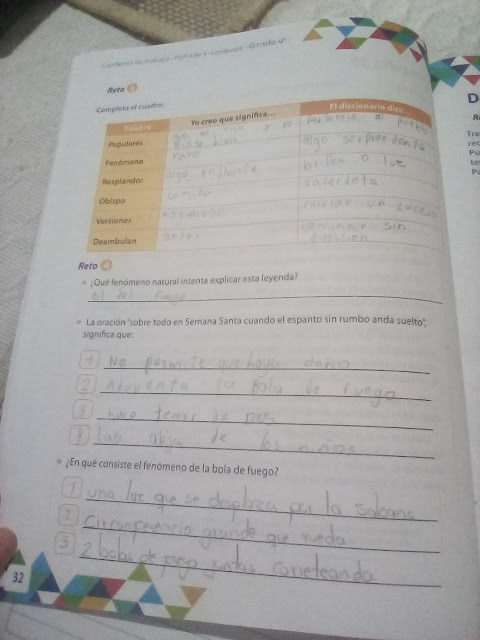 Cuaderno de Trabajo - Periodo 3 - Lenguaje - Grado 4°
Reto 3
Completa el cuadro:
Palabra Yo creo que significa... El diccionario dice...
Populares que es y se viste bien pertenece al pueblo
Fenómeno raro algo sorprendente
Resplandor algo brillante brillar o luz
Obispo sacerdote
Versiones narrar un suceso
Deambulan andar caminar sin direccion
Reto 4
• ¿Qué fenómeno natural intenta explicar esta leyenda?
El del fuego
• La oración "sobre todo en Semana Santa cuando el espanto sin rumbo anda suelto", significa que:
1 No permite que haya daño
2 Ahuyenta la bola de fuego
3 huye temor de
4 Las aleja de los niños
• ¿En qué consiste el fenómeno de la bola de fuego?
1 una luz que se desplaza por la sabana
2 Circonferencia grande que rueda
3 2 bolas de fuego juntas correteando
32
D